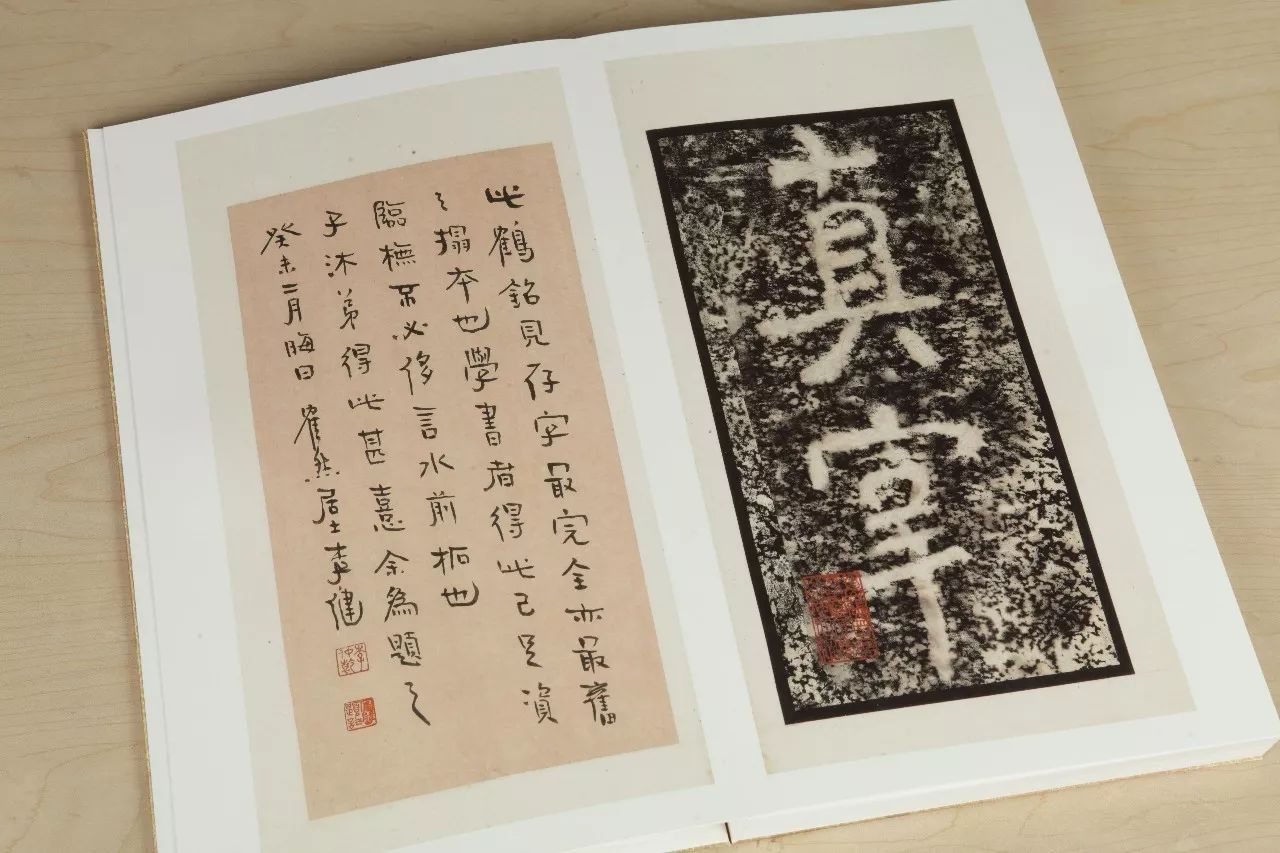 真宰
此鶴銘見存字最完全亦最舊
之搨本也學書者得此已足資
臨橅不必侈言水前拓也
子沐弟得此甚憙余為題之
癸未二月晦日 隺然居士李健
李仲乾